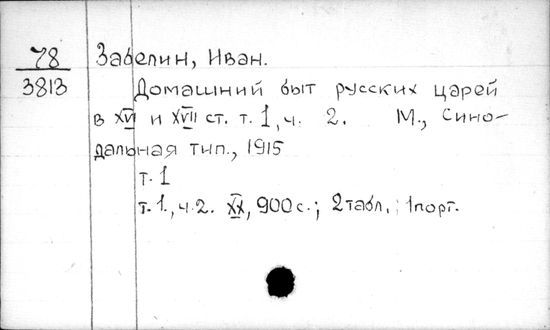 78 Забелин, Иван.
3813 Домашний быт русских царей
в XVI и XVII ст. т. 1, ч. 2. М., Сино-
дальная тип., 1915
т. 1
т. 1., ч. 2. XX, 900 с.; 2 табл., 1 порт.